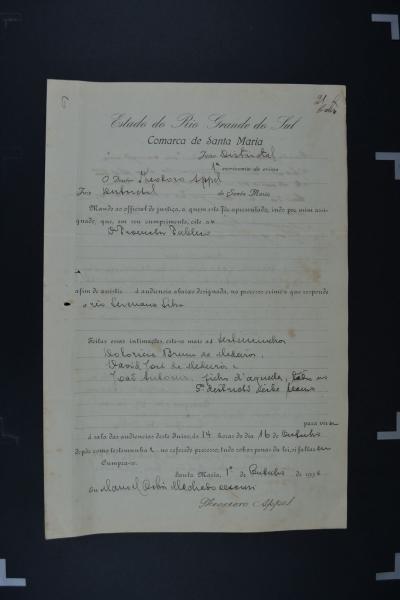 21
Estado do Rio Grande do Sul
Comarca de Santa Maria
Juizo Districtal
1º escrivania do crime
O Doutor Theodoro Appel
Juiz Districtal de Santa Maria
Mando ao official de justiça, a quem este fôr apresentado, indo por mim assi-
gnado, que, em seu cumprimento, cite a
o Promotor Publico
afim de assistir á audiencia abaixo designada, no processo crime a que responde
o réo Germano Silva
Feitas essas intimações, cite-se mais as testemunhas
Bruno de Medeiros,
David José de Medeiros e
João Antonio, todos no
5º districto deste termo
para virem
á sala das audiencias deste Juizo, ás 14 horas do dia 16 de Outubro
depôr como testemunhas no referido processo; tudo sob as penas da lei, si faltarem
Cumpra-se.
Santa Maria, 1º de Outubro de 193
Eu Manoel Machado escrivi
Theodoro Appel